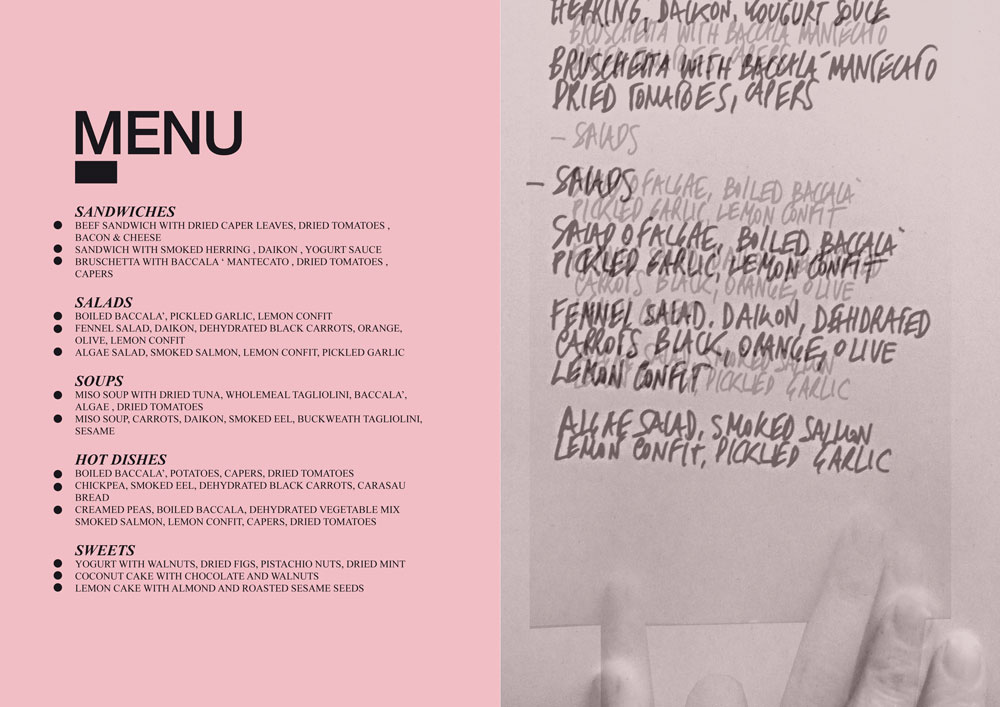 MENU
SANDWICHES
BEEF SANDWICH WITH DRIED CAPER LEAVES, DRIED TOMATOES ,
BACON & CHEESE
SANDWICH WITH SMOKED HERRING , DAIKON , YOGURT SAUCE
BRUSCHETTA WITH BACCALA ‘ MANTECATO , DRIED TOMATOES ,
CAPERS
SALADS
BOILED BACCALA’, PICKLED GARLIC, LEMON CONFIT
FENNEL SALAD, DAIKON, DEHYDRATED BLACK CARROTS, ORANGE,
OLIVE, LEMON CONFIT
ALGAE SALAD, SMOKED SALMON, LEMON CONFIT, PICKLED GARLIC
SOUPS
MISO SOUP WITH DRIED TUNA, WHOLEMEAL TAGLIOLINI, BACCALA’,
ALGAE , DRIED TOMATOES
MISO SOUP, CARROTS, DAIKON, SMOKED EEL, BUCKWEATH TAGLIOLINI,
SESAME
HOT DISHES
BOILED BACCALA’, POTATOES, CAPERS, DRIED TOMATOES
CHICKPEA, SMOKED EEL, DEHYDRATED BLACK CARROTS, CARASAU
BREAD
CREAMED PEAS, BOILED BACCALA, DEHYDRATED VEGETABLE MIX
SMOKED SALMON, LEMON CONFIT, CAPERS, DRIED TOMATOES
SWEETS
YOGURT WITH WALNUTS, DRIED FIGS, PISTACHIO NUTS, DRIED MINT
COCONUT CAKE WITH CHOCOLATE AND WALNUTS
LEMON CAKE WITH ALMOND AND ROASTED SESAME SEEDS
HERRING, DAIKON, YOUGURT SOUCE
BRUSCHETTA WITH BACCALA' MANTECATO
BRUSCHETTA WITH BACCALA' MANTECATO
DRIED TOMATOES, CAPERS
– SALADS
– SALADS
OF ALGAE, BOILED BACCALA'
PICKLED GARLIC, LEMON CONFIT
SALAD OF ALGAE, BOILED BACCALA'
PICKLED GARLIC, LEMON CONFIT
CARROTS BLACK, ORANGE, OLIVE
FENNEL SALAD, DAIKON, DEHIDRATED
CARROTS BLACK, ORANGE, OLIVE
LEMON CONFIT
PICKLED GARLIC
ALGAE SALAD, SMOKED SALMON
LEMON CONFIT, PICKLED GARLIC